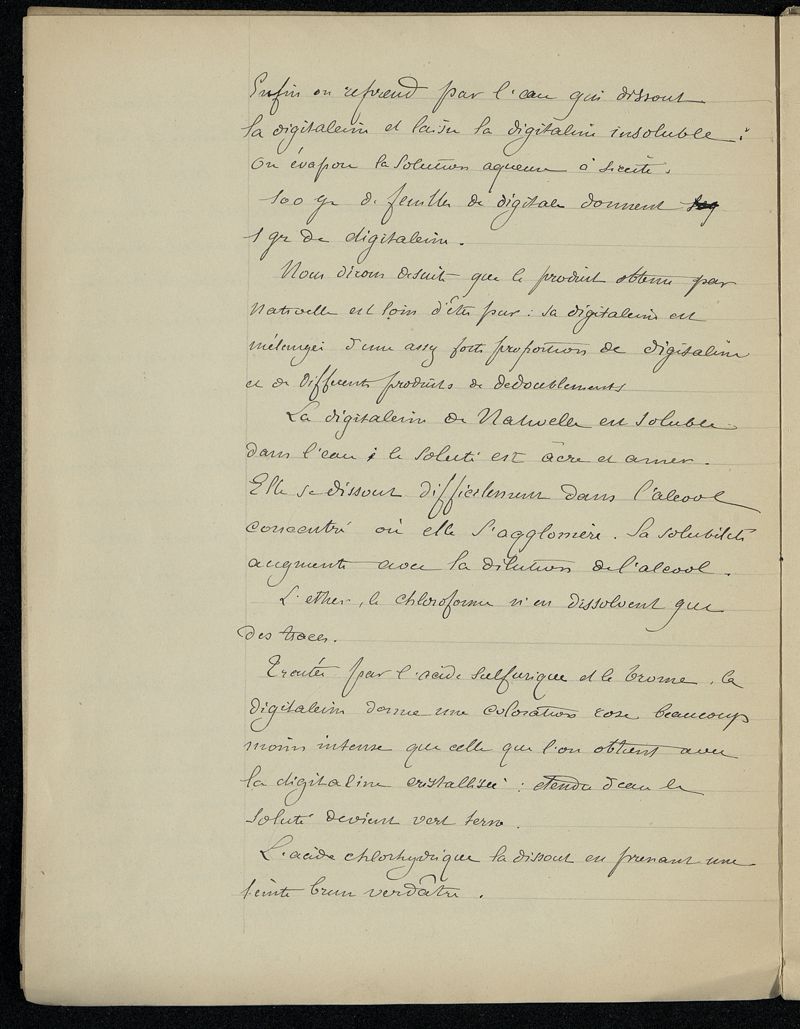 Enfin on reprend par l'eau qui dissout
la digitaleine et laisse la digitaline insoluble.
On évapore la solution aqueuse à siccité.
100 gr de feuilles de digitale donnent
1 gr de digitaleine.
Nous dirons desuite que le produit obtenu par
Nativelle est loin d'être pur : sa digitaleine est
mélangée d'une assez forte proportion de digitaline
et de différents produits de dedoublements
La digitaleine de Nativelle est soluble
dans l'eau ; le soluté est âcre et amer.
Elle se dissout difficilement dans l'alcool
concentré où elle s'agglomère. Sa solubilité
augmente avec la dilution de l'alcool.
L'ether, le chloroforme n'en dissolvent que
des traces.
Traitée par l'acide sulfurique et le brome, la
digitaleine donne une coloration rose beaucoup
moins intense que celle que l'on obtient avec
la digitaline cristallisée : étendu d'eau le
soluté devient vert terne.
L'acide chlorhydrique la dissout en prenant une
teinte brun verdâtre.